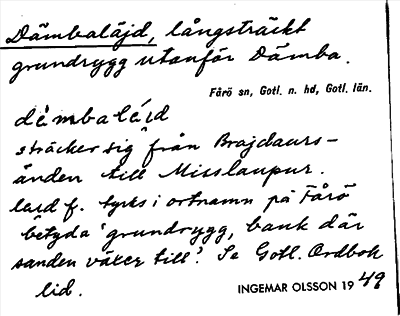 Dämbaläjd, långsträckt
grundrygg utanför Dämba.
Fårö sn, Gotl. n. hd, Gotl. län.
dämbaläid
sträcker sig från Brajdaurs-
änden till Misslaupur.
laid f. tycks i ortnamn på Fårö
betyda 'grundrygg, bank där
sanden växer till'. Se Gotl. Ordbok
lid.
INGEMAR OLSSON 19 49